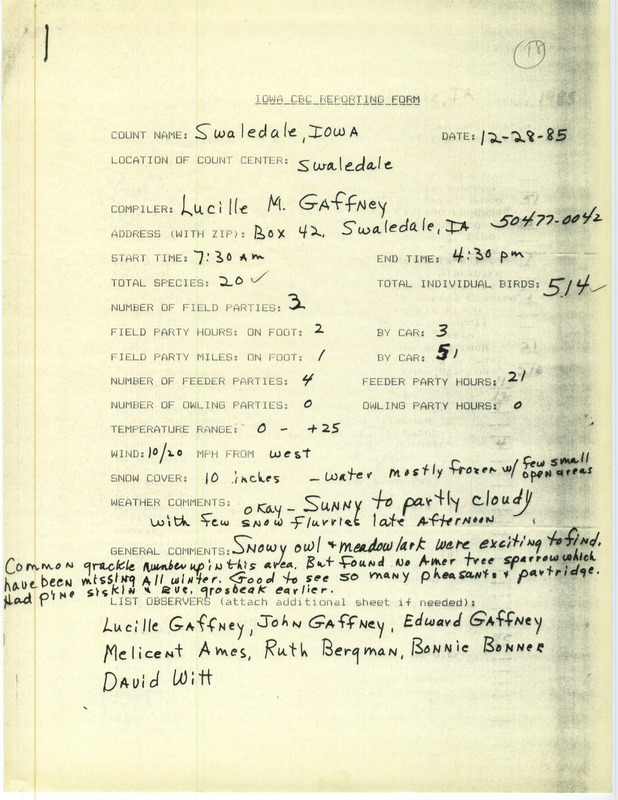 18
IOWA CBC REPORTING FORM
COUNT NAME: Swaledale, Iowa DATE: 12-28-85
LOCATION OF COUNT CENTER: Swaledale
COMPILER: Lucille M. Gaffney
ADDRESS (WITH ZIP): Box 42, Swaledale, IA 50477-0042
START TIME: 7:30 am END TIME: 4:30 pm
TOTAL SPECIES: 20 ✓ TOTAL INDIVIDUAL BIRDS: 514 ✓
NUMBER OF FIELD PARTIES: 3
FIELD PARTY HOURS: ON FOOT: 2 BY CAR: 3
FIELD PARTY MILES: ON FOOT: 1 BY CAR: 51
NUMBER OF FEEDER PARTIES: 4 FEEDER PARTY HOURS: 21
NUMBER OF OWLING PARTIES: 0 OWLING PARTY HOURS: 0
TEMPERATURE RANGE: 0 - +25
WIND: 10/20 MPH FROM west
SNOW COVER: 10 inches - water mostly frozen w/ few small
open areas
WEATHER COMMENTS: okay - Sunny to partly cloudy
with few snow flurries late afternoon
GENERAL COMMENTS: Snowy owl & meadowlark were exciting to find.
Common grackle number up in this area. But found no Amer tree sparrow which
have been missing all winter. Good to see so many pheasants & partridge.
Had pine siskin & eve. grosbeak earlier.
LIST OBSERVERS (attach additional sheet if needed):
Lucille Gaffney, John Gaffney, Edward Gaffney
Melicent Ames, Ruth Bergman, Bonnie Bonner
David Witt